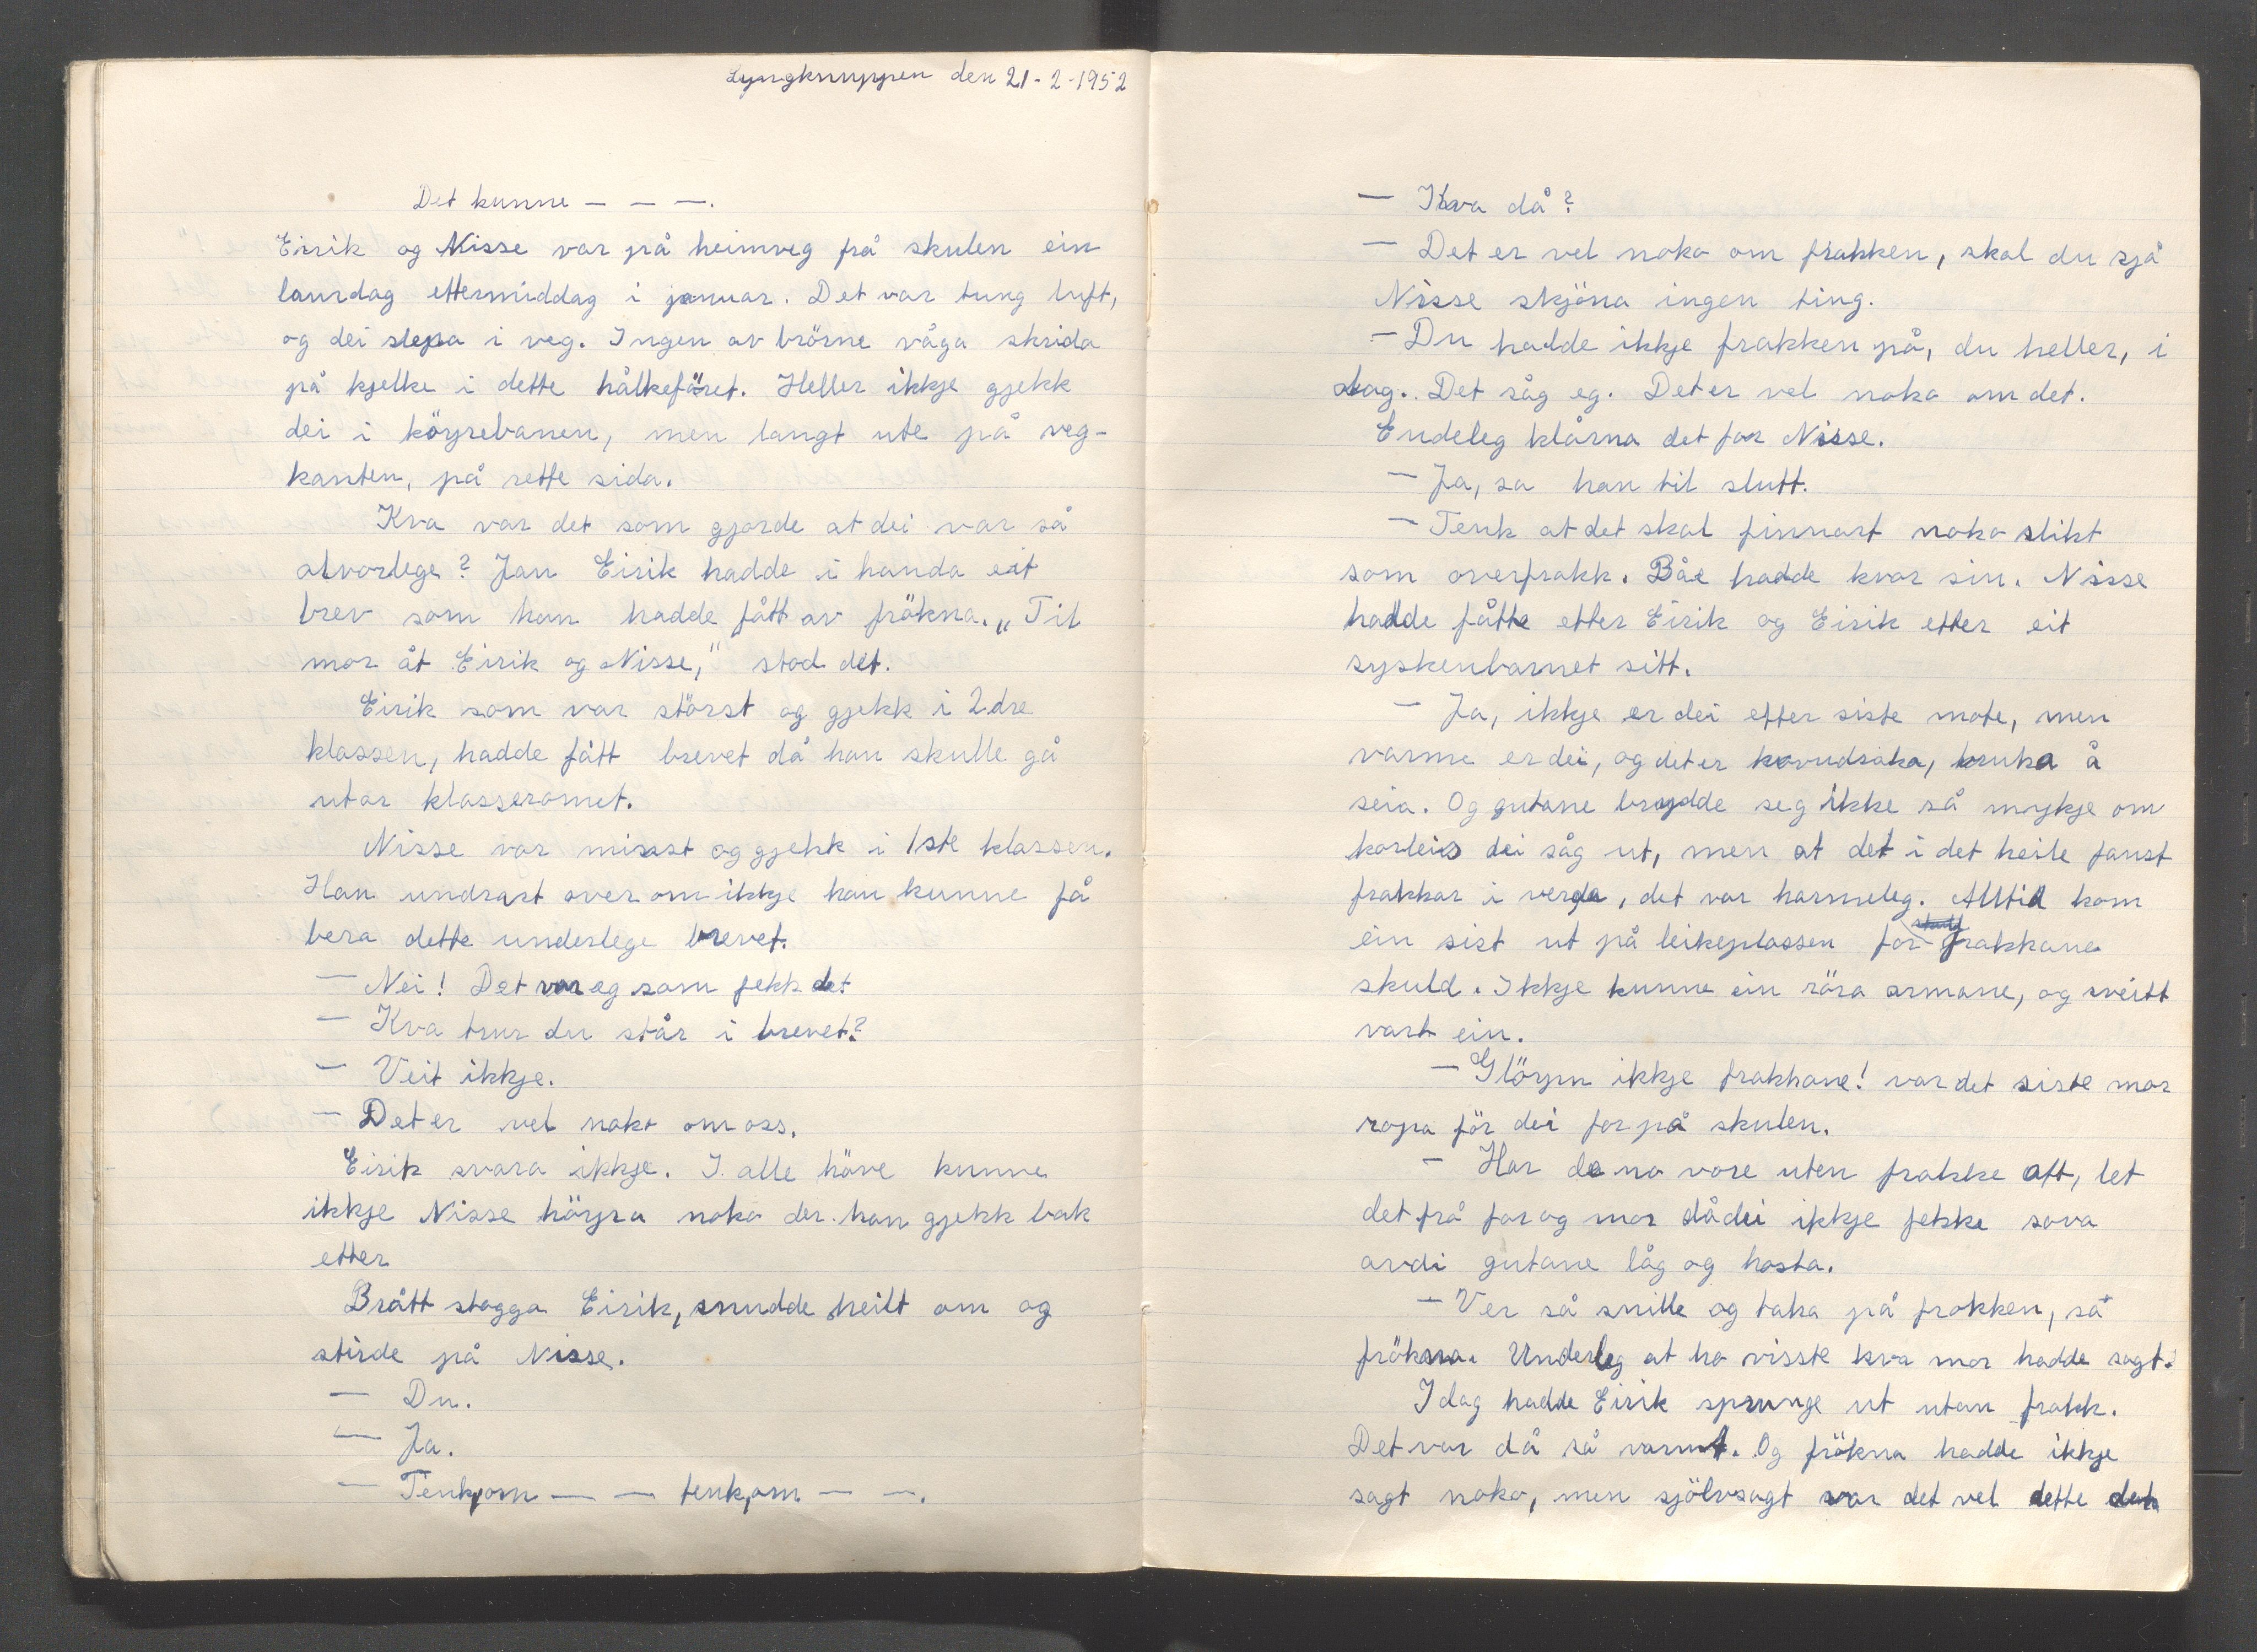 Lyngknuppen den 21-2-1952
Det kunne — — —.
Eirik og Nisse var på heimveg frå skulen ein
laurdag ettermiddag i januar. Det var tung luft,
og dei slepa i veg. Ingen av brörne våga skrida
på kjelke i dette hålkeföret. Heller ikkje gjekk
dei i köyrebanen, men langt ute på veg-
kanten, på rette sida.
Kva var det som gjorde at dei var så
alvorlege? Jau Eirik hadde i handa eit
brev som han hadde fått av frökna. „Til
mor åt Eirik og Nisse," stod det.
Eirik som var störst og gjekk i 2dre
klassen, hadde fått brevet då han skulle gå
utor klasseromet.
Nisse var minst og gjekk i 1ste klassen.
Han undrast over om ikkje han kunne få
bera dette underlege brevet.
— Nei! Det var eg som fekk det
— Kva trur du står i brevet?
— Veit ikkje.
— Det er vel noko om oss.
Eirik svara ikkje. I alle höve kunne
ikkje Nisse höyra noko der han gjekk bak
etter
Brått stogga Eirik, snudde heilt om og
stirde på Nisse.
— Du.
— Ja.
— Tenk,om — — tenk,om — —.
— Kva då?
— Det er vel noko om frakken, skal du sjå
Nisse skjöna ingen ting.
— Du hadde ikkje frakken på, du heller, i
dag. Det såg eg. Det er vel noko om det.
Endeleg klårna det for Nisse.
— Ja, sa han til slutt.
— Tenk at det skal finnast noko slikt
som overfrakk. Båe hadde kvar sin. Nisse
hadde fått etter Eirik og Eirik etter eit
syskenbarnet sitt.
— Ja, ikkje er dei etter siste mote, men
varme er dei, og det er hovudsaka, bruka å
seia. Og gutane brydde seg ikke så mykje om
korleis dei såg ut, men at det i det heile fanst
frakkar i verda, det var harmeleg. Alltid kom
ein sist ut på leikeplassen for frakkane
skuld. Ikkje kunne ein röra armane, og sveitt
vart ein.
— Glöym ikkje frakkane! var det siste mor
ropa för dei for på skulen.
— Har de no vore uten frakke att, let
det frå far og mor då dei ikkje fekke sova
avdi gutane låg og hosta.
— Ver så snille og taka på frakken, sa
frökna. Underleg at ho visste kva mor hadde sagt.
I dag hadde Eirik sprunge ut utan frakk.
Det var då så varmt. Og frökna hadde ikkje
sagt noko, men sjölvsagt var det vel dette det